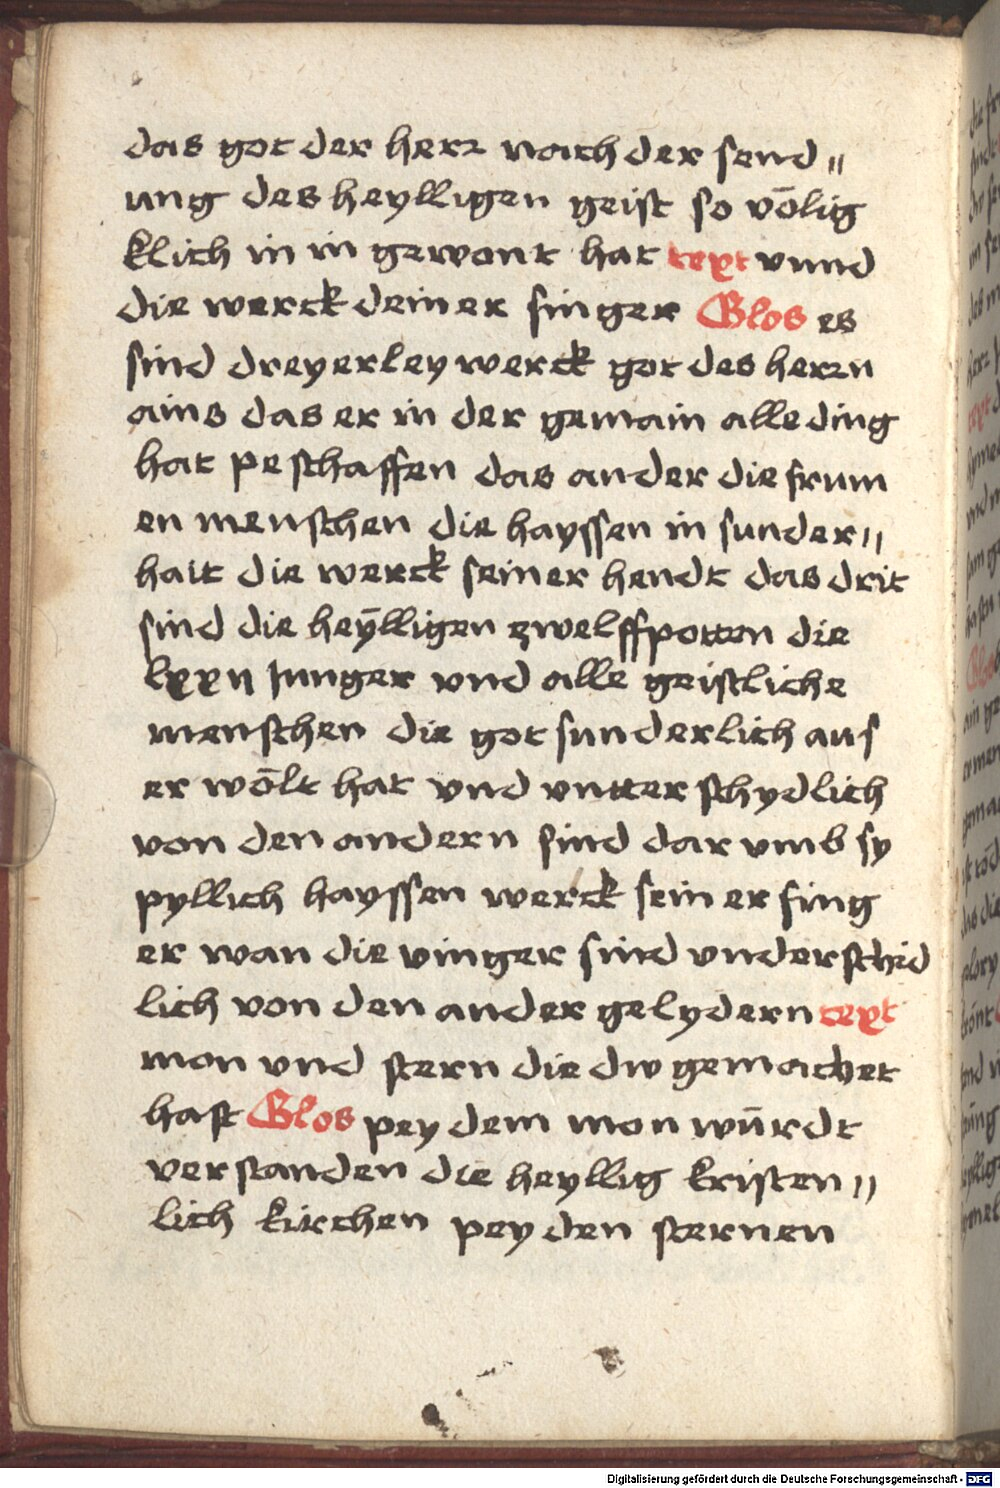 das got der herr nach der send〃
ung des heylligen geist so völig
klich in in gewont hat text vnnd
die werck deiner finger Glos es
sind dreyerley werck got des herrn
ains das er in der gemain alle ding
hat peschaffen das ander die frum
en menschen die hayssen in sunder〃
hait die werck seiner hendt das drit
sind die heÿlligen zwelffpotten die
lxxij Junger vnd alle geistliche
menschen die got sunderlich aus
er wölt hat vnd vntterschydlich
von den andern sind dar vmb sy
pyllich hayssen werck seiner fing
er wan die vinger sind vnderschid
lich von den ander gelydern text
mon vnd stern die dw gemachet
hast Glos pey dem mon würdt
verstanden die heyllig kristen〃
lich kirchen pey den sternen
Digitalisierung gefördert durch die Deutsche Forschungsgemeinschaft - DFG